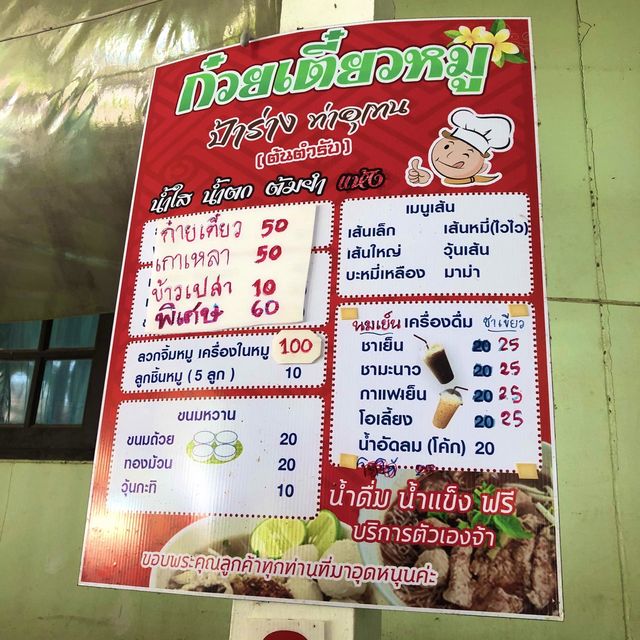 ก๋วยเตี๋ยวหมู
ป้าร่าง ท่าอุเทน
(ต้นตำรับ)
น้ำใส น้ำตก ต้มยำ แห้ง
ก๋ายเตี๋ยว 50
เกาเหลา 50
ข้าวเปล่า 10
พิเศษ 60
ลวกจิ้มหมู เครื่องในหมู 100
ลูกชิ้นหมู ( 5 ลูก ) 10
ขนมหวาน
ขนมถ้วย 20
ทองม้วน 20
วุ้นกะทิ 10
เมนูเส้น
เส้นเล็ก เส้นหมี่(ไวไว)
เส้นใหญ่ วุ้นเส้น
บะหมี่เหลือง มาม่า
นมเย็น เครื่องดื่ม ชาเขียว
ชาเย็น 20 25
ชามะนาว 20 25
กาแฟเย็น 20 25
โอเลี้ยง 20 25
น้ำอัดลม (โค้ก) 20
น้ำดื่ม น้ำแข็ง ฟรี
บริการตัวเองจ้า
ขอบพระคุณลูกค้าทุกท่านที่มาอุดหนุนค่ะ